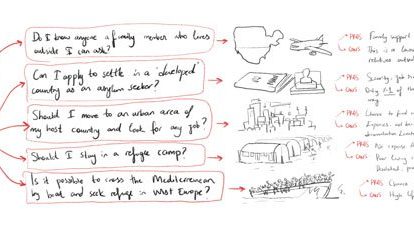 Do I know anyone a family member who lives
outside I can ask?
PROS Family support
CONS This is a
relatives outside
Can I apply to settle in a 'developed'
country as an asylum seeker?
PROS Security, job
CONS Only <1% of the
way
Should I move to an urban area of
my host country and look for any job?
PROS Chance to find
CONS Expensive, not
documentation
Should I stay in a refugee camp?
PROS
CONS Poor living
Is it possible to cross the Mediterranean
by boat and seek refuge in West Europe?
PROS Chance
CONS High